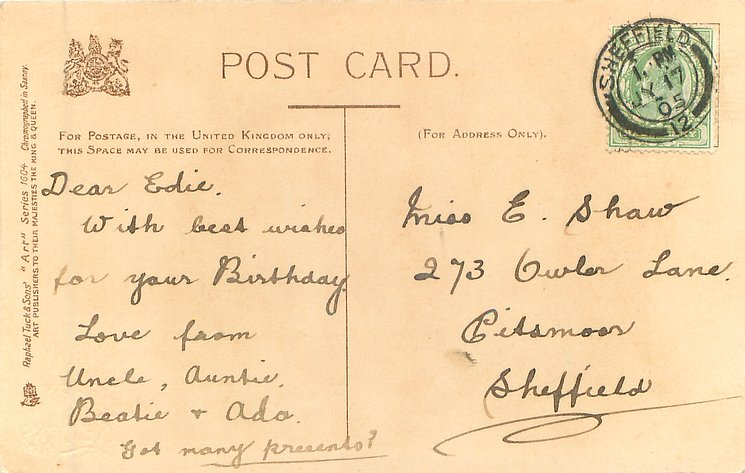 POST CARD.
FOR POSTAGE, IN THE UNITED KINGDOM ONLY,
THIS SPACE MAY BE USED FOR CORRESPONDENCE.
(FOR ADDRESS ONLY).
SHEFFIELD
1. PM
JY 17
05
12
Raphael Tuck & Sons' "Art" Series 1604 Chromographed in Saxony.
ART PUBLISHERS TO THEIR MAJESTIES THE KING & QUEEN.
Dear Edie.
With best wishes
for your Birthday
Love from
Uncle, Auntie.
Beatie + Ada.
Got many presents?
Miss E. Shaw
273 Owler Lane.
Pitsmoor
Sheffield